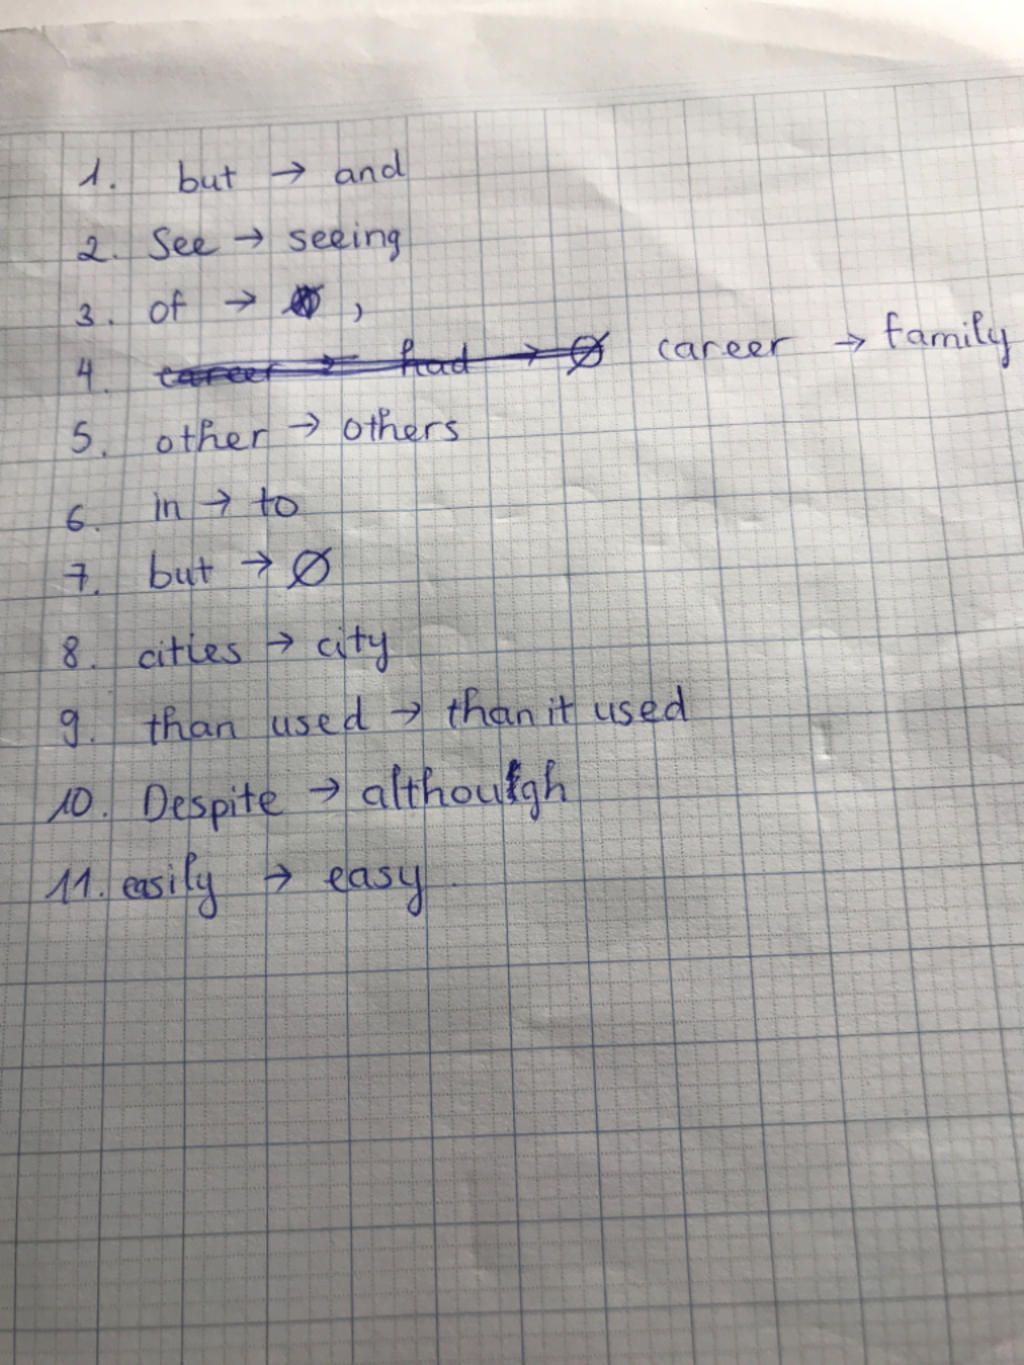 1. but → and
2. See → seeing
3. of → ,
4. career → had → Ø career → family
5. other → others
6. in → to
7. but → Ø
8. cities → city
9. than used → than it used
10. Despite → although
11. easily → easy